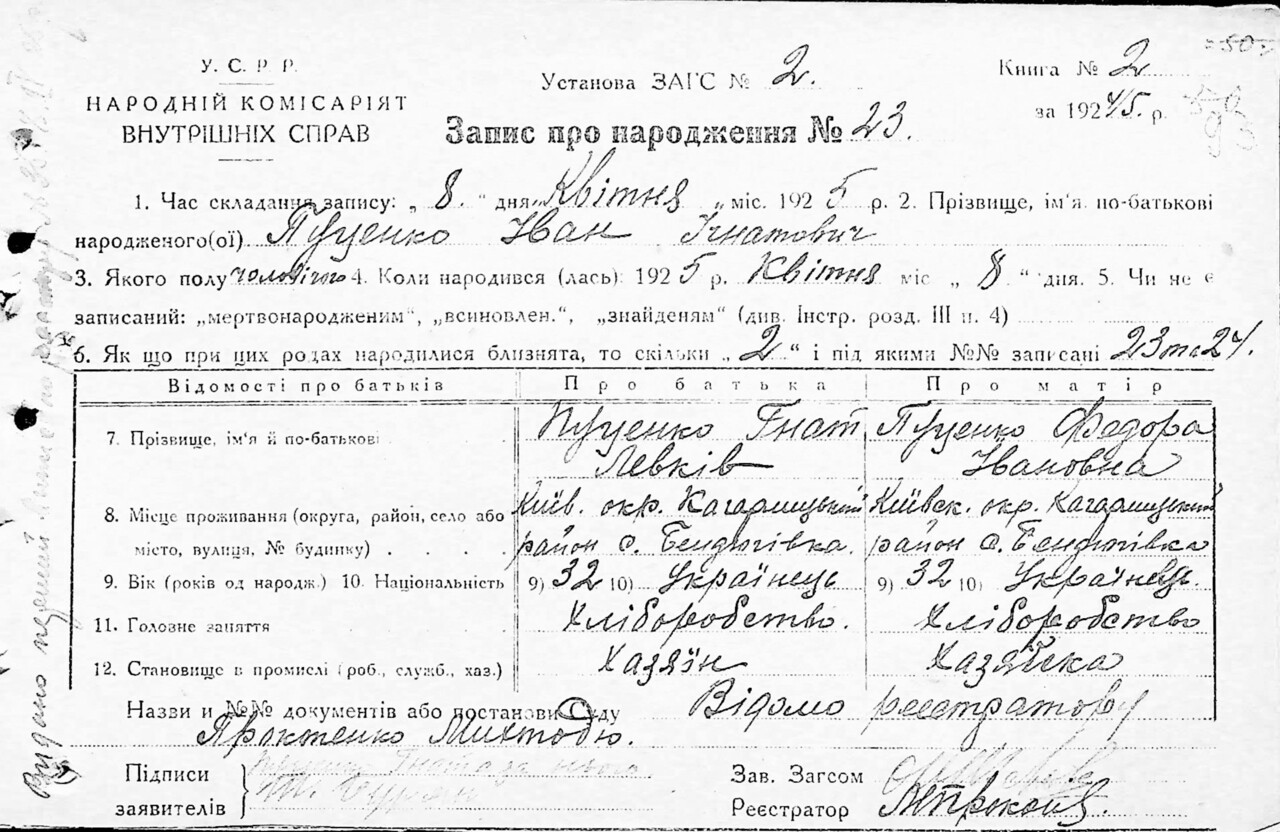 У. С. Р. Р.
НАРОДНІЙ КОМІСАРІЯТ
ВНУТРІШНІХ СПРАВ
Установа ЗАГС № 2.
Книга № 2
за 1924/5 р.
Запис про народження № 23.
1. Час складання запису: „ 8. " дня „ Квітня „ міс. 1925 р. 2. Прізвище, ім'я по-батькові
народженого(ої) Пуценко Іван Ігнатович
3. Якого полу чоловічого 4. Коли народився (лась) 1925 р. Квітня міс „ 8 " дня. 5. Чи не є
записаний: „мертвонародженим", „всиновлен.", „знайденям" (див. Інстр. розд. III п. 4)
6. Як що при цих родах народилися близнята, то скільки „ 2 " і під якими №№ записані 23 та 24.
Відомості про батьків Про батька Про матір
7. Прізвище, ім'я й по-батькові Пуценко Гнат Пуценко Федора
Левків Івановна
8. Місце проживання (округа, район, село або Київ. окр. Кагарлицький Київск. окр. Кагарлицький
місто, вулиця, № будинку) . . . . район с. Бендюгівка. район с. Бендюгівка
9. Вік (років од народж.) 10. Національність 9) 32 10) Українець 9) 32 10) Українець.
11. Головне заняття Хліборобство. Хліборобство
12. Становище в промислі (роб., служб., хаз.) Хазяїн Хазяйка
Назви и №№ документів або постанови Суду Відомо реєстратору
Підписи
заявителів
Зав. Загсом
Реєстратор